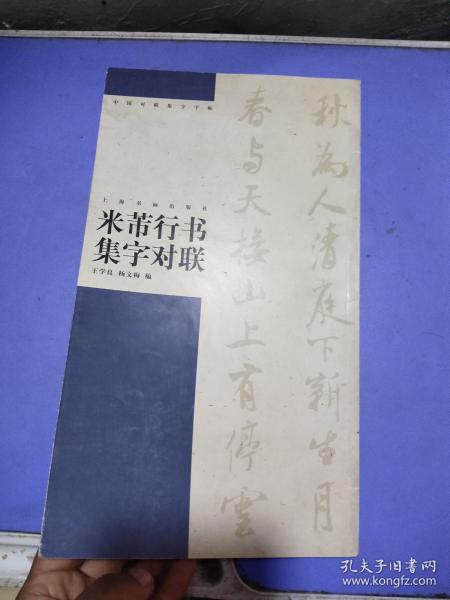 中国对联集字字帖
上海书画出版社
米芾行书
集字对联
王学良 杨文梅 编
秋为人清庭下新生月
春与天接山上有停云
孔夫子旧书网
www.kongfz.com